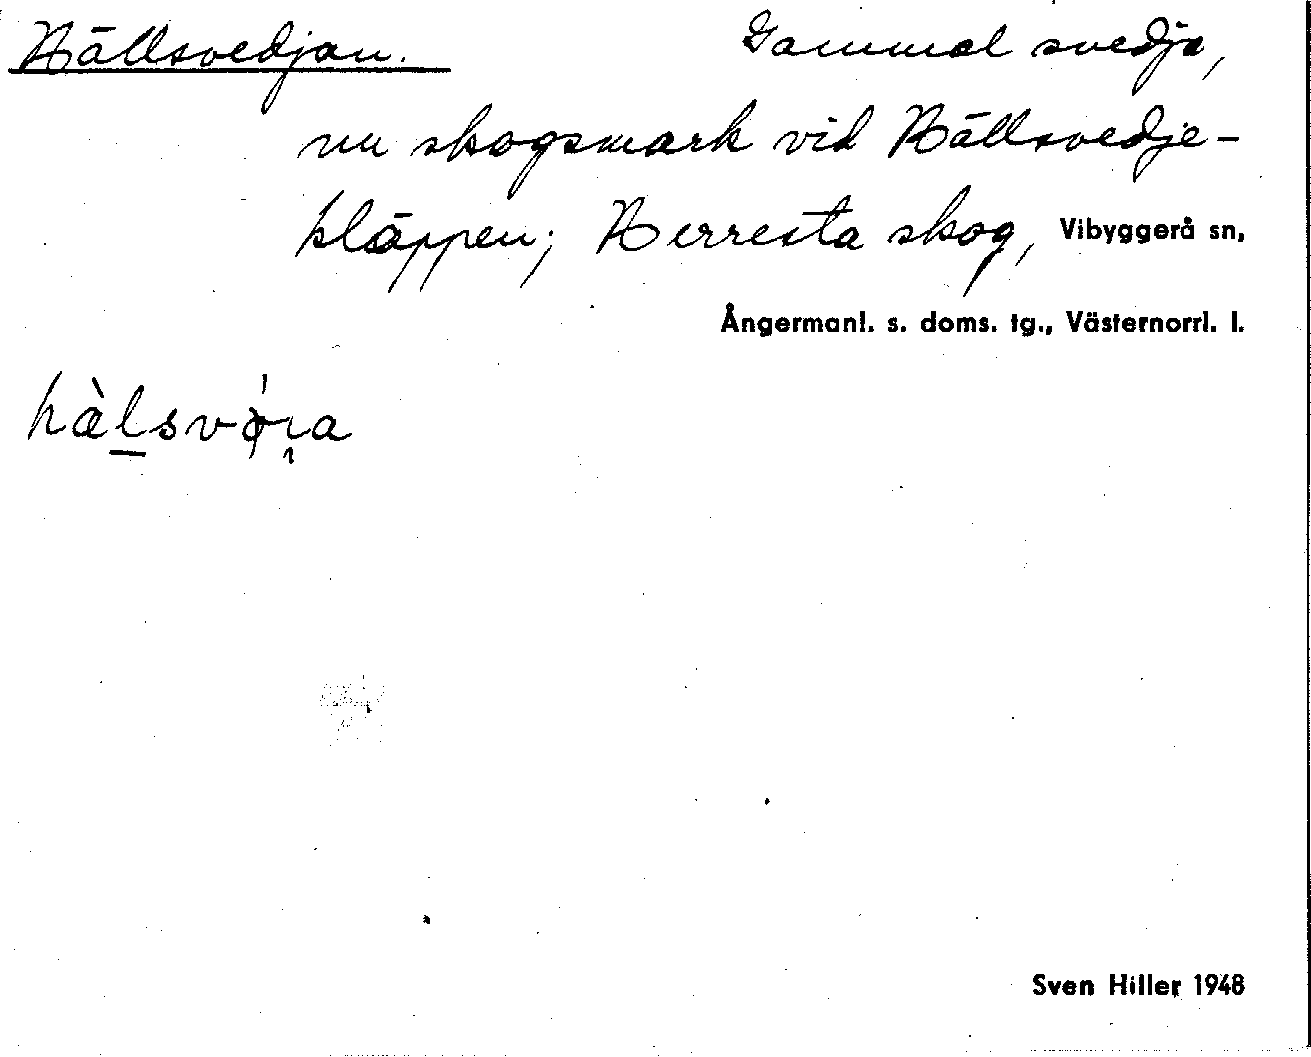 Hällsvedjan. Gammal svedja,
nu skogsmark vid Hällsvedje-
kläppen; Herresta skog, Vibyggerå sn,
Ångermanl. s. doms. tg., Västernorrl. l.
Sven Hiller 1948